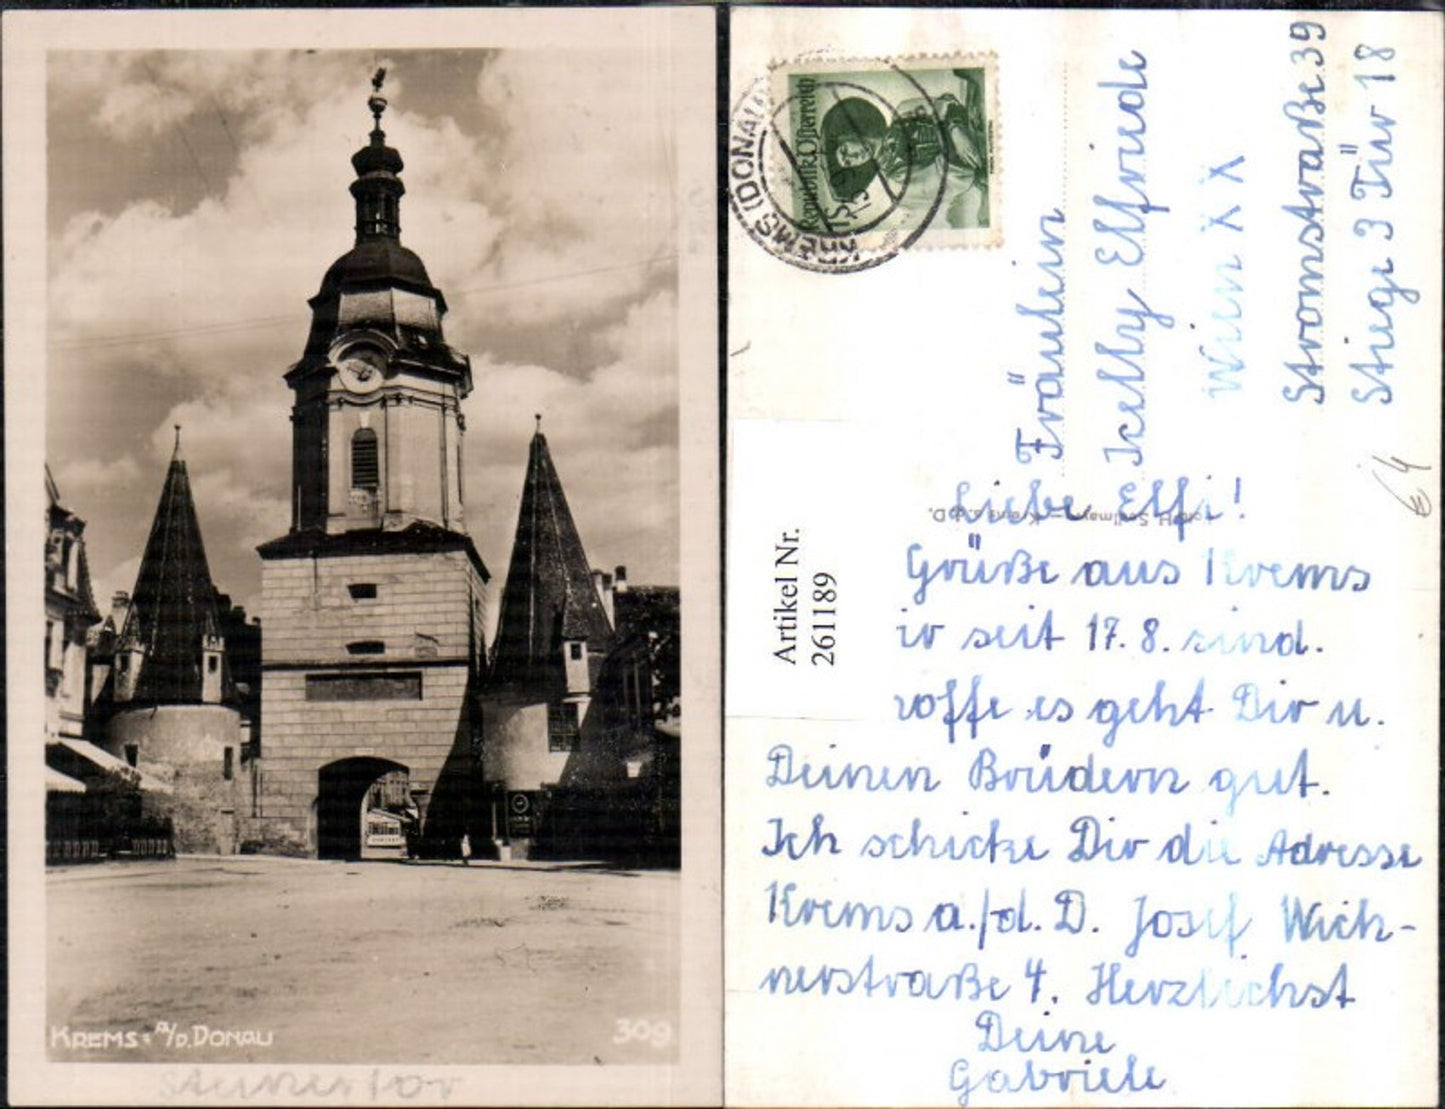 KREMS A/D. DONAU
309
Steinertor
KREMS (DONAU)
Republik Österreich
Artikel Nr.
261189
Fräulein
Elfriede
Wien XX
Stromstraße 39
Stiege 3 Tür 18
Liebe Elfi!
Grüße aus Krems
seit 17. 8. sind.
hoffe es geht Dir u.
Deinen Brüdern gut.
Ich schicke Dir die Adresse
Krems a./d. D. Josef Wich-
nerstraße 4. Herzlichst
Deine
Gabriele